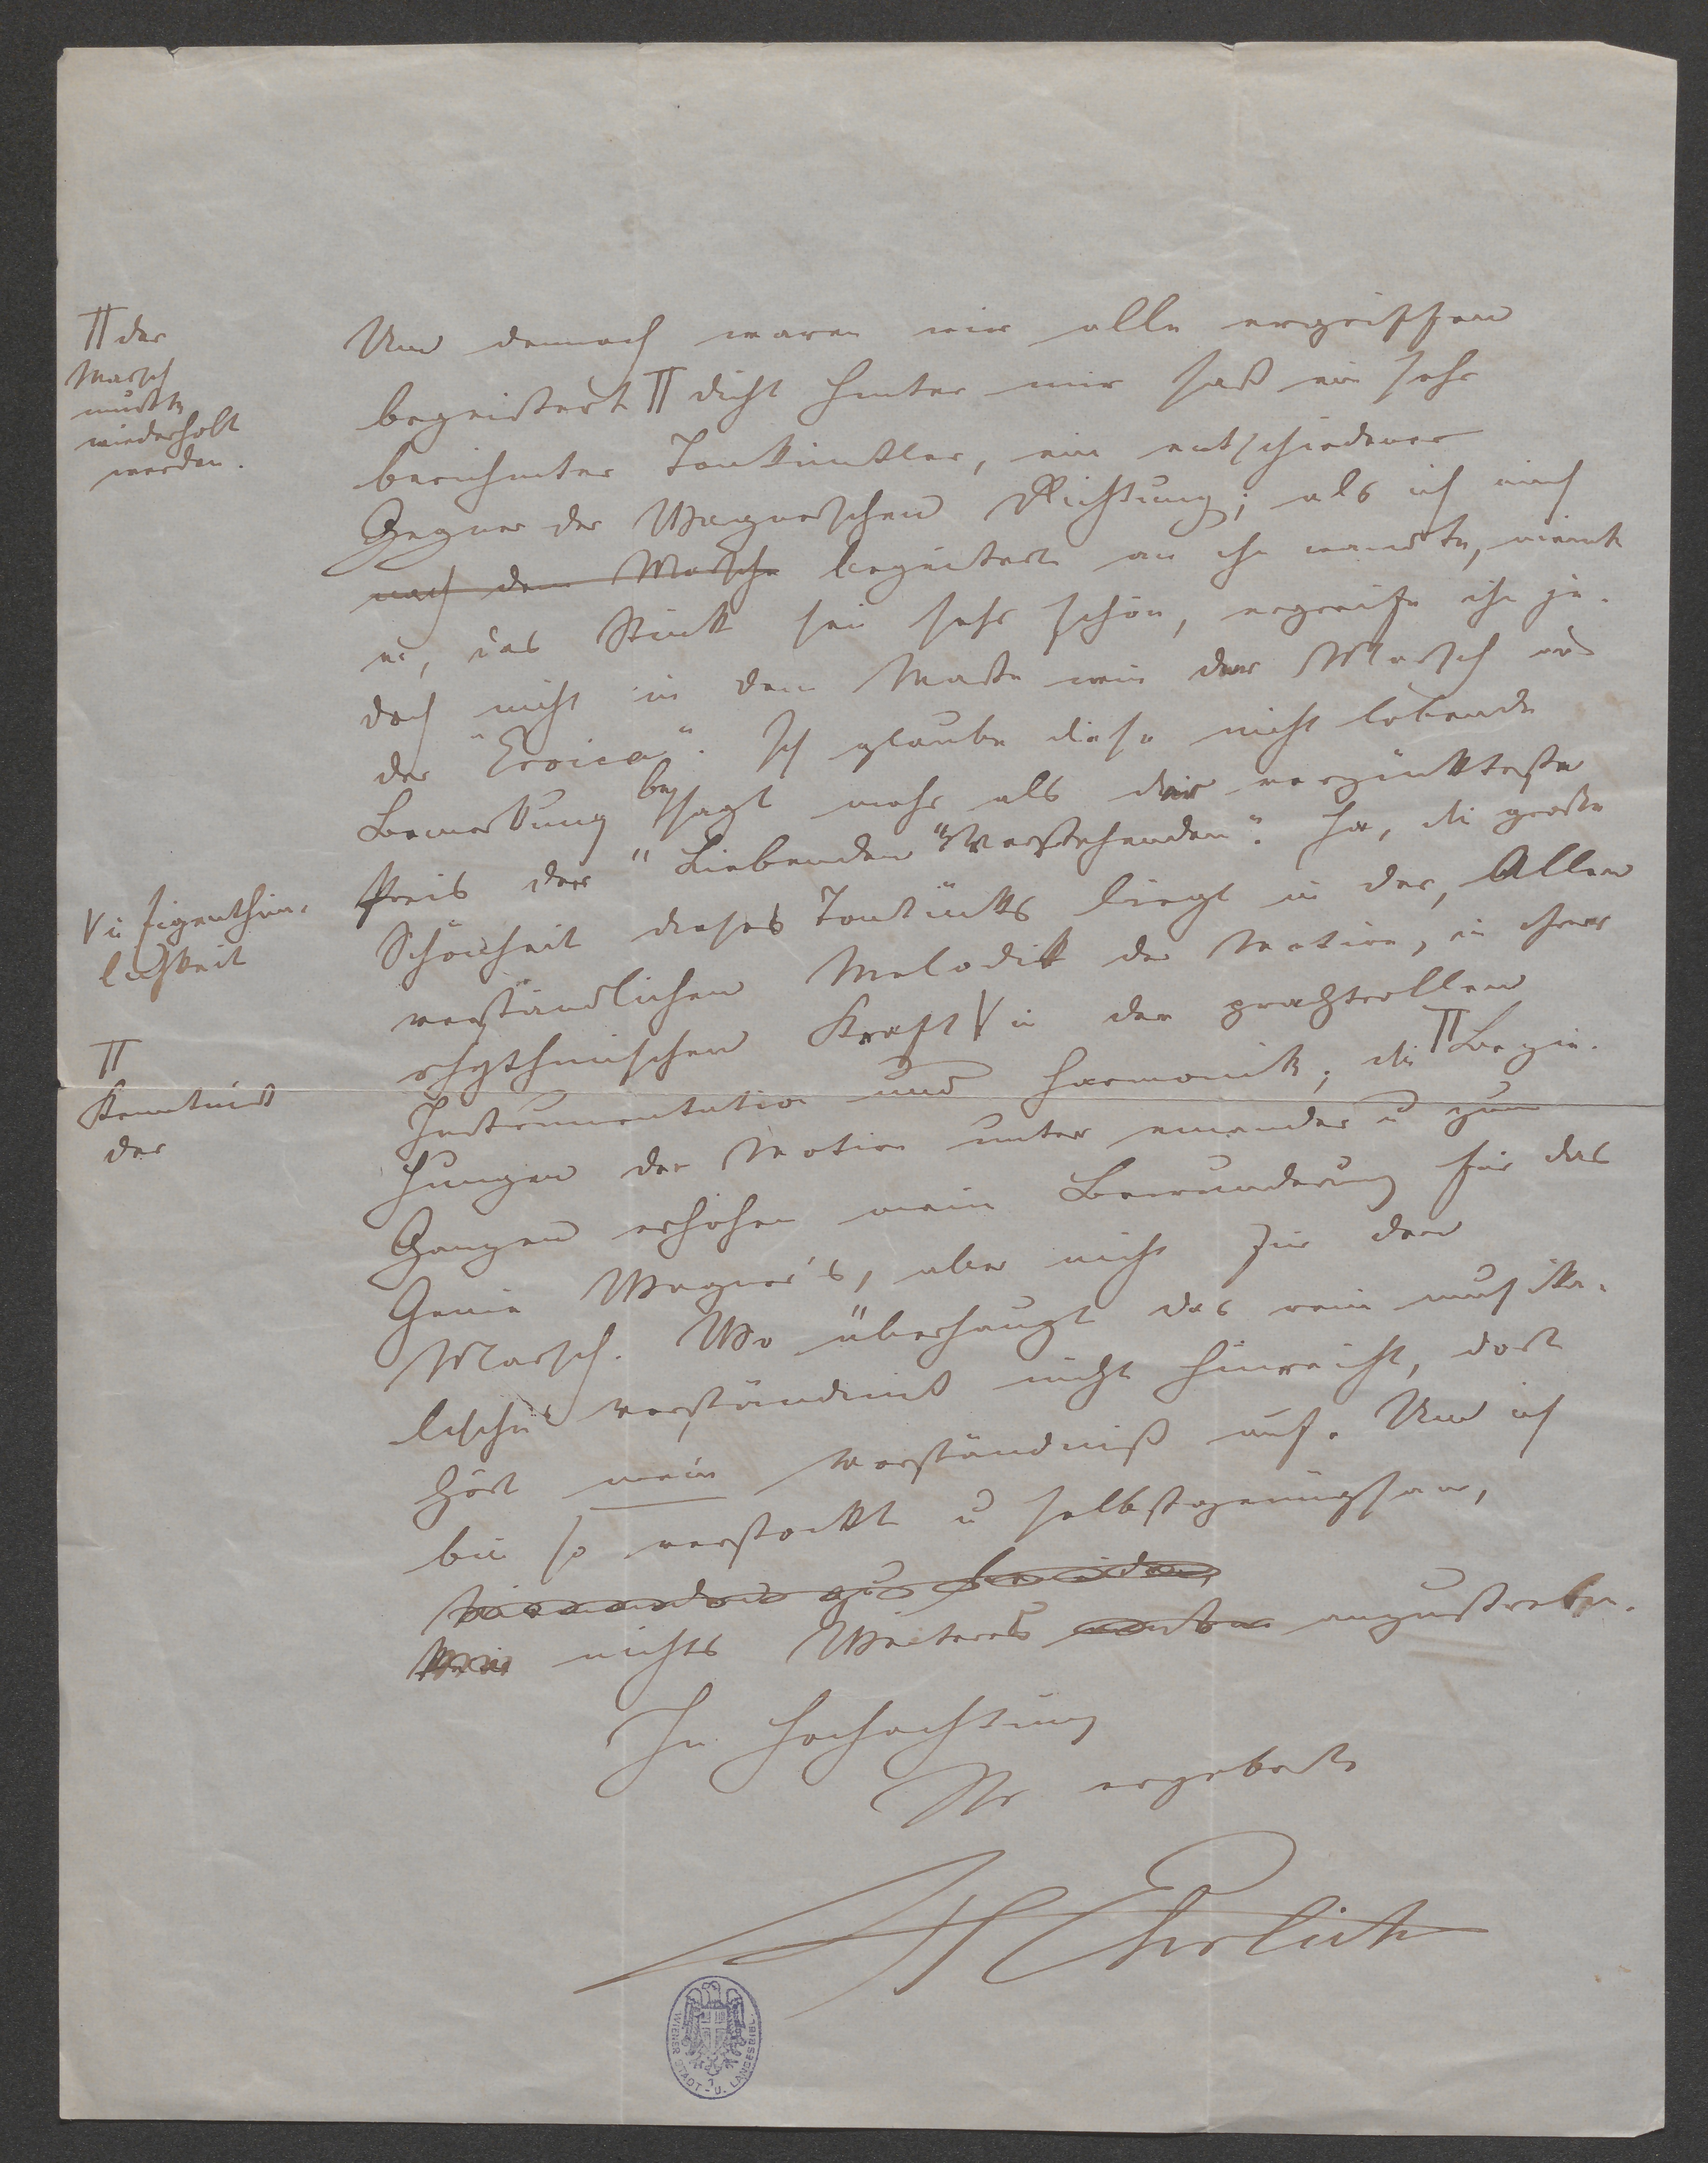 Und dennoch waren wir alle ergriffen
begeistert ╥ dicht hinter mir saß ein sehr
berühmter Tonkünstler, ein entschiedener
Gegner der Wagnerschen Richtung; als ich mich
nach dem Marsche begeistert an ihn wandte, meinte
er, das Stück sei sehr schön, ergreife ihn je-
doch nicht in dem Maße wie der Marsch aus
der "Eroica". Ich glaube diese nicht lobende
Bemerkung besagt mehr als der verzückteste
Preis der "Liebenden Verstehenden". Ja, die große
Schönheit dieses Tonstücks liegt in der, Allen
verständlichen Melodik der Motive, in ihrer
rhythmischen Kraft V in der prachtvollen
Instrumentation und Harmonik; die ╥ Bezie-
hungen der Motive unter einander u zum
Ganzen erhöhen meine Bewunderung für das
Genie Wagner's, aber nicht für den
Marsch. Wo überhaupt das rein musika-
lische Verständniß nicht hinreicht, dort
hört mein Verständniß auf. Und ich
bin so verstockt u selbstgenügsam,
nichts Weiteres anzustreben.
In Hochachtung
Ihr ergebenster
H Ehrlich
╥ der
Marsch
mußte
wiederholt
werden.
V u Eigenthüm-
lichkeit
╥
Kenntniß
der
WIENER STADT- U. LANDESBIBL.